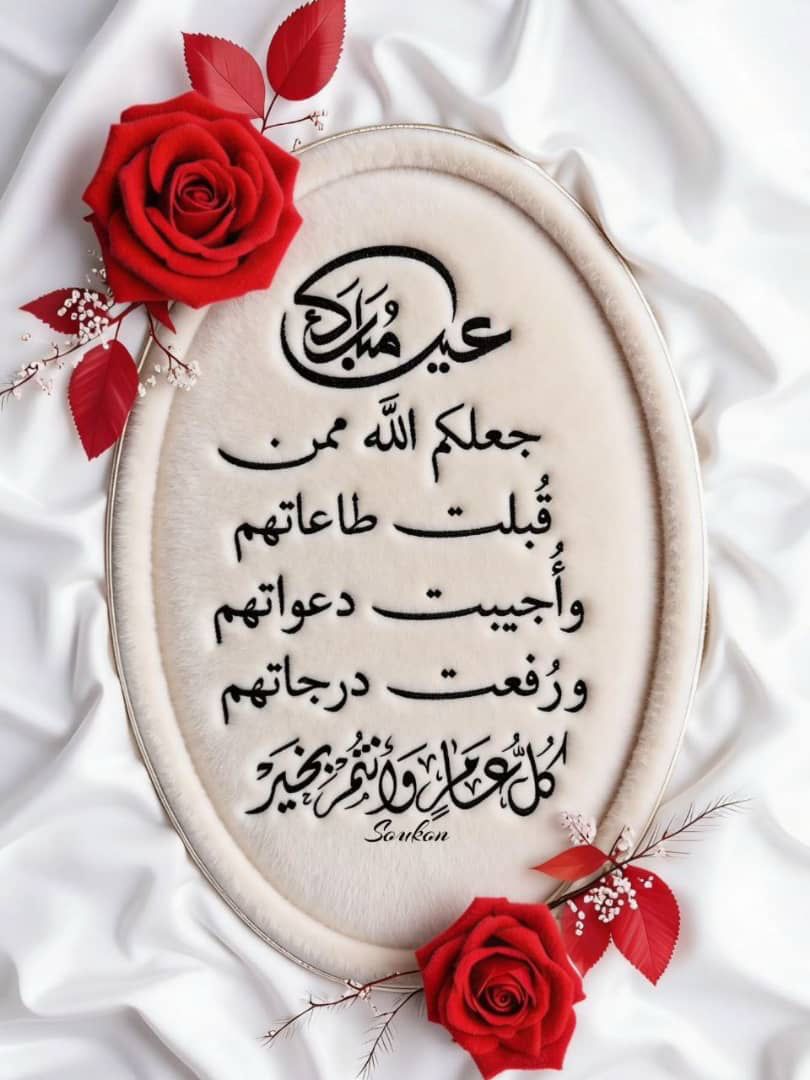 عيد مُبَارَك
جعلكم اللَّه ممن
قُبلت طاعاتهم
وأُجيبت دعواتهم
ورُفعت درجاتهم
كُلُّ عَامٍ وَأَنتُمْ بِخَيْر
Soukon